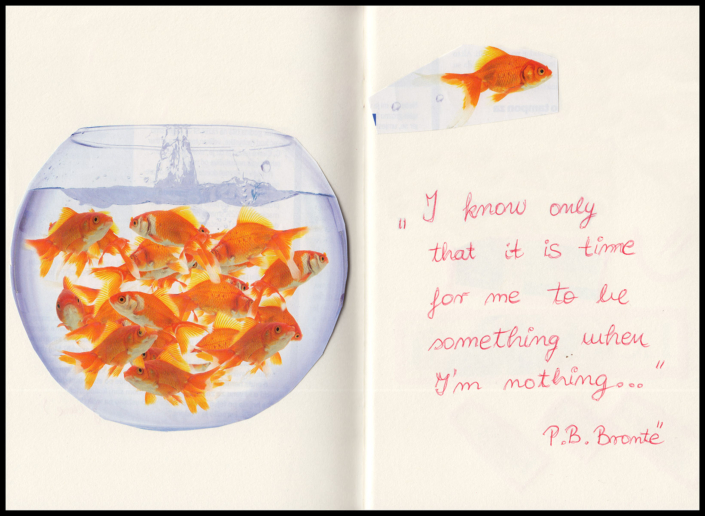 „I know only
that it is time
for me to be
something when
I'm nothing..."
P.B. Brontë"